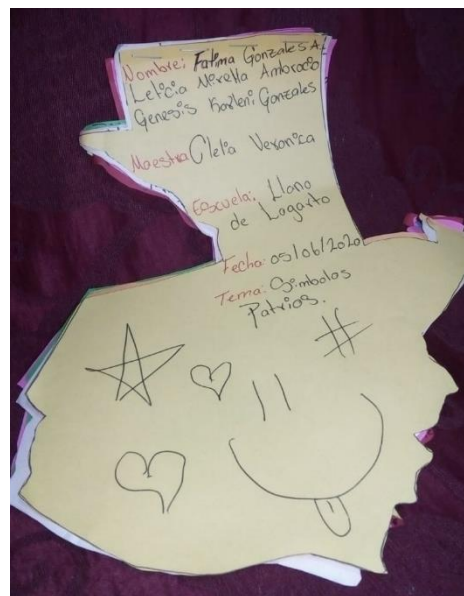 Nombre: Fatima Gonzales A.
Leticia Mirella Ambrocio
Genesis Karleni Gonzales
Maestra Clelia Veronica
Escuela: Llano
de Lagarto
Fecha: 05/06/2020
Tema: Simbolos
Patrios.
#